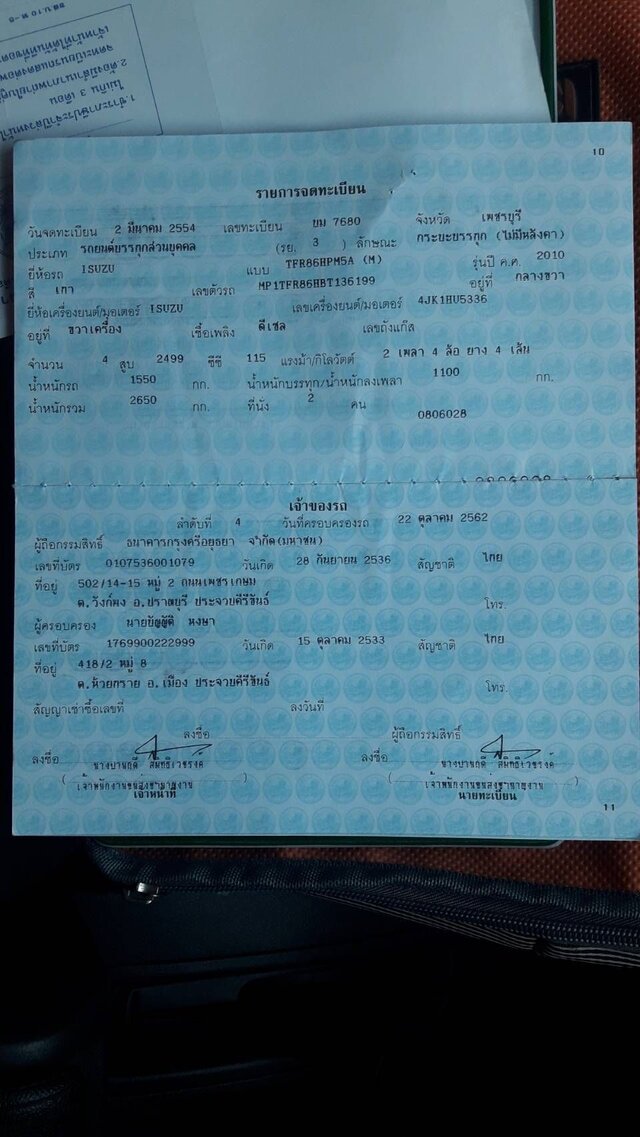 1.ชำระภาษีประจำปีล่วงหน้าได้
ไม่เกิน 3 เดือน
10
รายการจดทะเบียน
วันจดทะเบียน 2 มีนาคม 2554 เลขทะเบียน ยม 7680 จังหวัด เพชรบุรี
ประเภท รถยนต์บรรทุกส่วนบุคคล (รย. 3 ) ลักษณะ กระบะบรรทุก (ไม่มีหลังคา)
ยี่ห้อรถ ISUZU แบบ TFR86HPM5A (M) รุ่นปี ค.ศ. 2010
สี เทา เลขตัวรถ MP1TFR86HBT136199 อยู่ที่ กลางขวา
ยี่ห้อเครื่องยนต์/มอเตอร์ ISUZU เลขเครื่องยนต์/มอเตอร์ 4JK1HU5336
อยู่ที่ ขวาเครื่อง เชื้อเพลิง ดีเซล เลขถังแก๊ส
จำนวน 4 สูบ 2499 ซีซี 115 แรงม้า/กิโลวัตต์ 2 เพลา 4 ล้อ ยาง 4 เส้น
น้ำหนักรถ 1550 กก. น้ำหนักบรรทุก/น้ำหนักลงเพลา 1100 กก.
น้ำหนักรวม 2650 กก. ที่นั่ง 2 คน
0806028
เจ้าของรถ
ลำดับที่ 4 วันที่ครอบครองรถ 22 ตุลาคม 2562
ผู้ถือกรรมสิทธิ์ ธนาคารกรุงศรีอยุธยา จำกัด(มหาชน)
เลขที่บัตร 0107536001079 วันเกิด 28 กันยายน 2536 สัญชาติ ไทย
ที่อยู่ 502/14-15 หมู่ 2 ถนนเพชรเกษม
ต.วังก์พง อ.ปราณบุรี ประจวบคีรีขันธ์ โทร.
ผู้ครอบครอง นายบัญญัติ หงษา
เลขที่บัตร 1769900222999 วันเกิด 15 ตุลาคม 2533 สัญชาติ ไทย
ที่อยู่ 418/2 หมู่ 8
ต.ห้วยทราย อ.เมือง ประจวบคีรีขันธ์ โทร.
สัญญาเช่าซื้อเลขที่ ลงวันที่
ลงชื่อ ผู้ถือกรรมสิทธิ์
ลงชื่อ ลงชื่อ
( เจ้าพนักงานขนส่งชำนาญงาน ) ( เจ้าพนักงานขนส่งชำนาญงาน )
เจ้าหน้าที่ นายทะเบียน
11